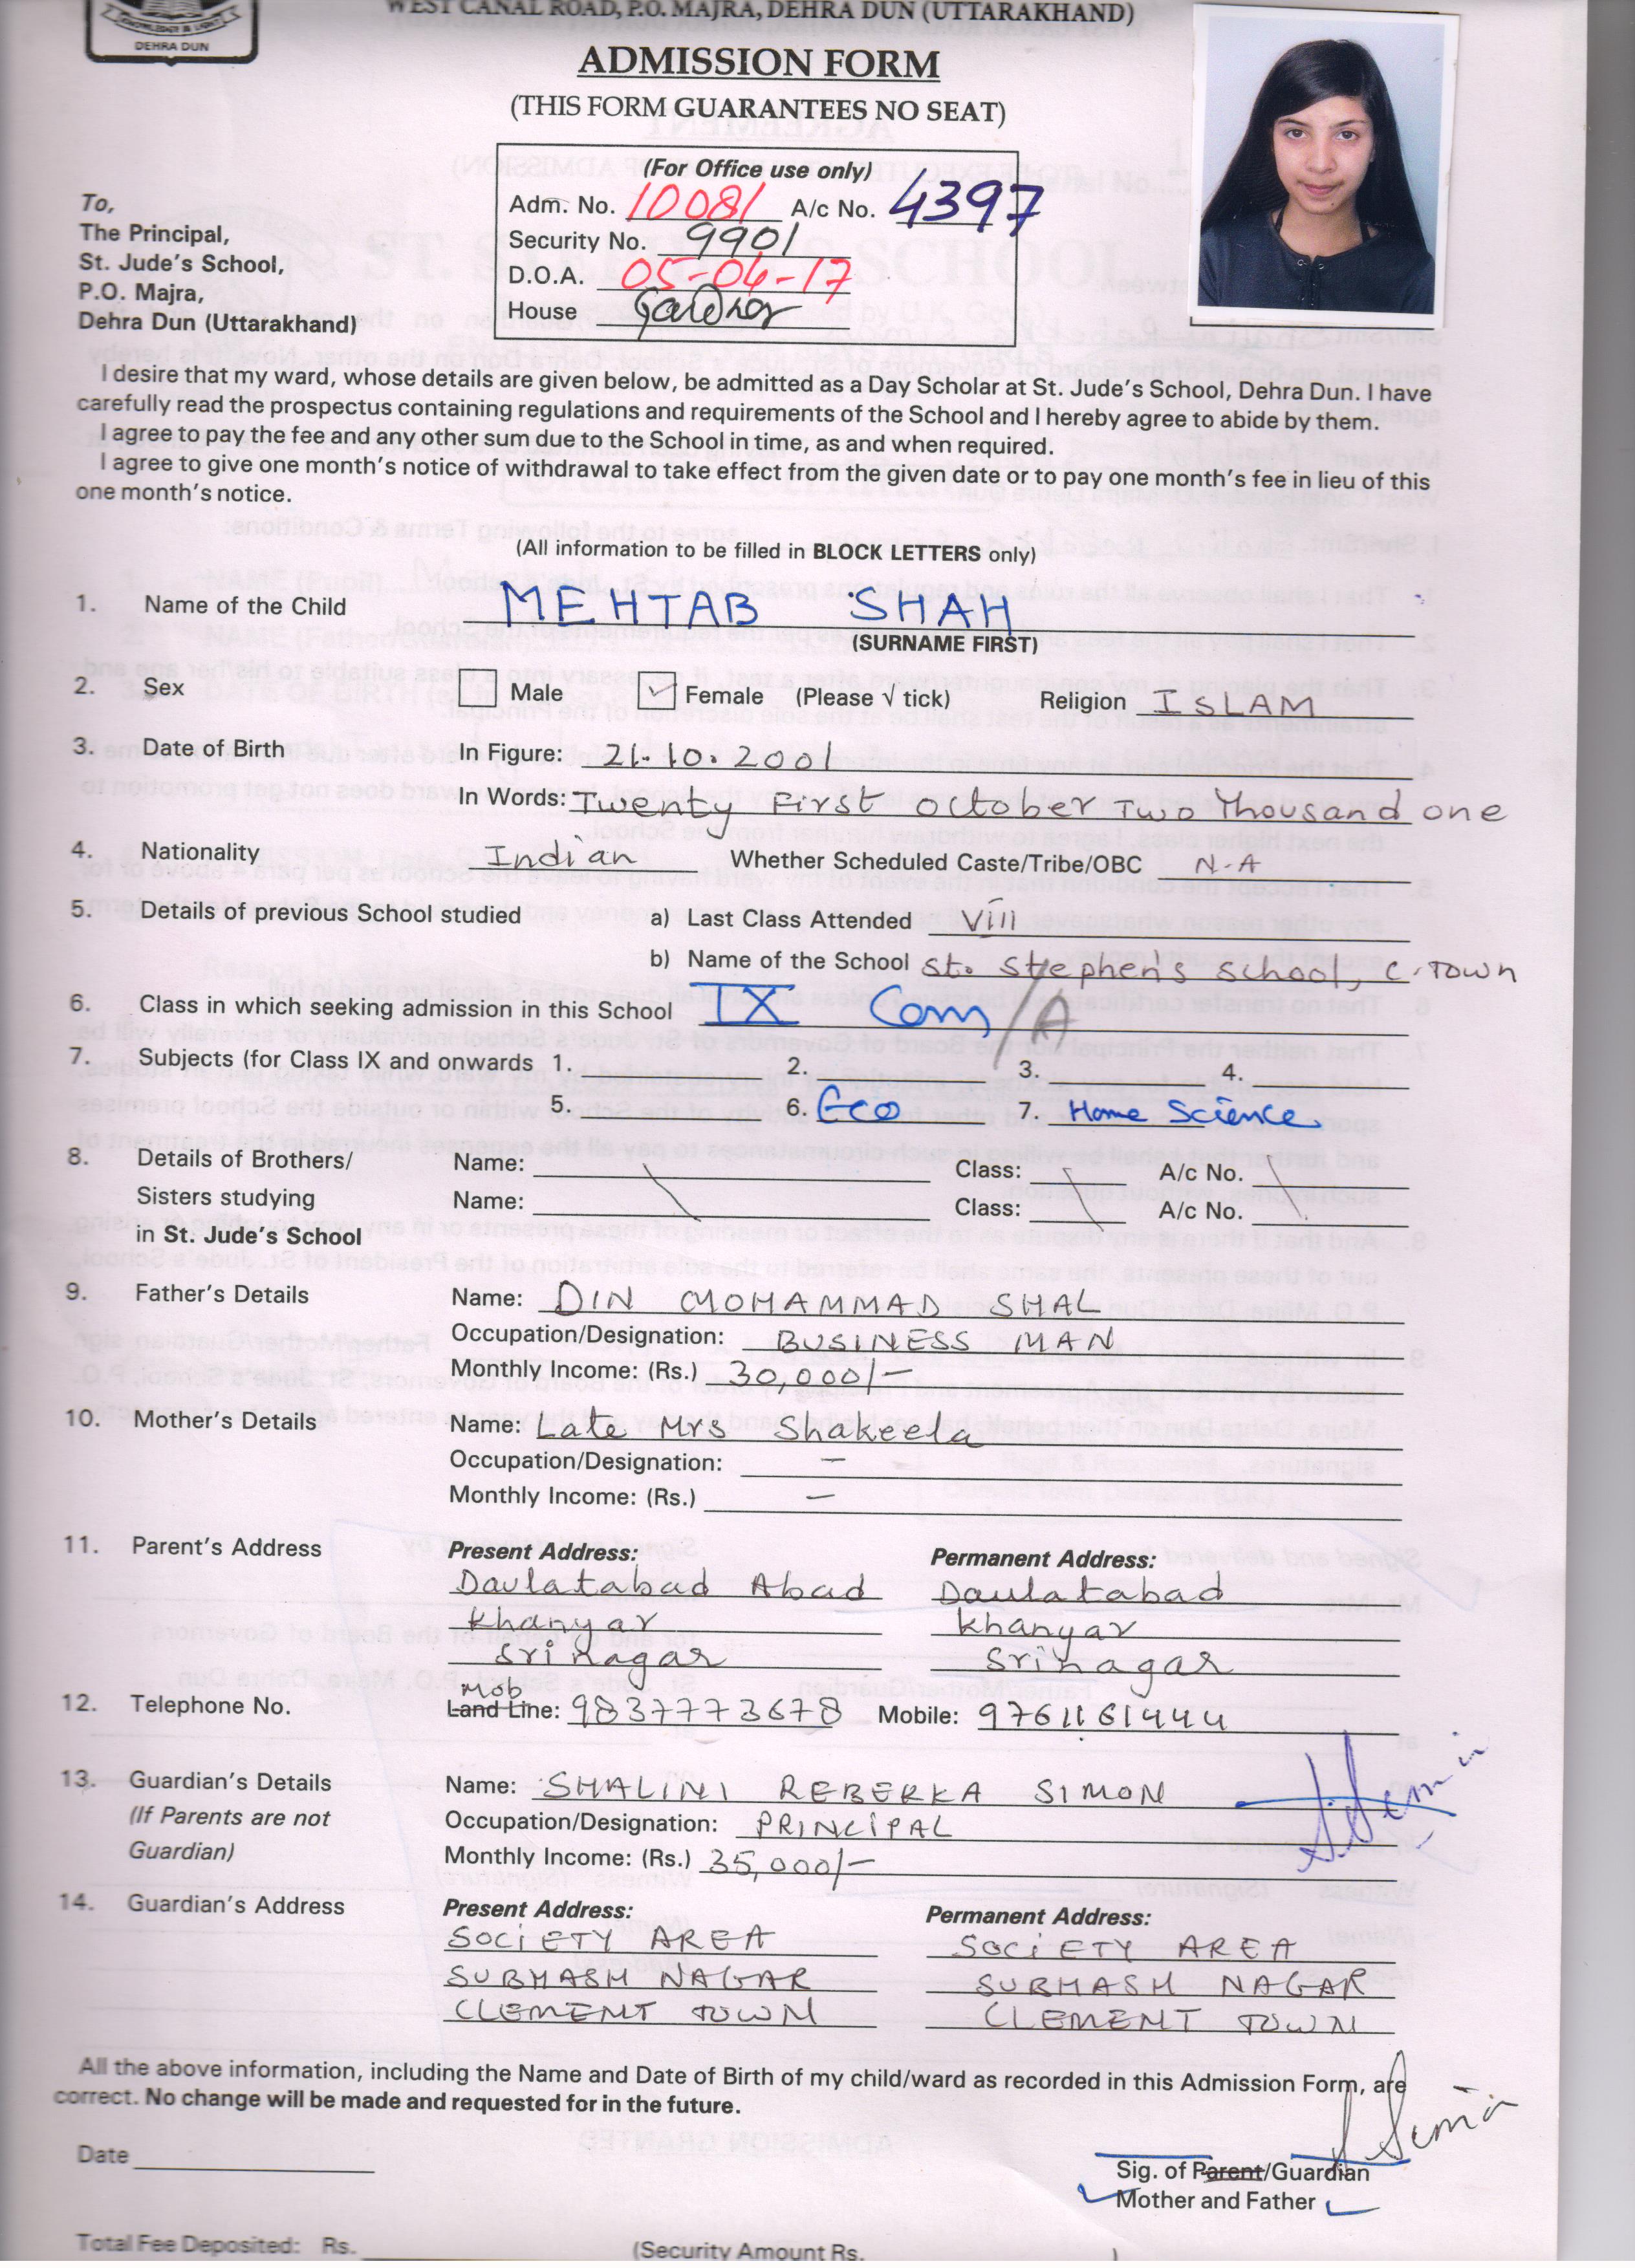 KNOWLEDGE IS LIGHT
DEHRA DUN
WEST CANAL ROAD, P.O. MAJRA, DEHRA DUN (UTTARAKHAND)
ADMISSION FORM
(THIS FORM GUARANTEES NO SEAT)
(For Office use only)
Adm. No. 10081 A/c No. 4397
Security No. 9901
D.O.A. 05-04-17
House Gardner
To,
The Principal,
St. Jude's School,
P.O. Majra,
Dehra Dun (Uttarakhand)
I desire that my ward, whose details are given below, be admitted as a Day Scholar at St. Jude's School, Dehra Dun. I have
carefully read the prospectus containing regulations and requirements of the School and I hereby agree to abide by them.
I agree to pay the fee and any other sum due to the School in time, as and when required.
I agree to give one month's notice of withdrawal to take effect from the given date or to pay one month's fee in lieu of this
one month's notice.
(All information to be filled in BLOCK LETTERS only)
1. Name of the Child MEHTAB SHAH
(SURNAME FIRST)
2. Sex Male Female (Please √ tick) Religion ISLAM
3. Date of Birth In Figure: 21.10.2001
In Words: Twenty First October Two Thousand one
4. Nationality Indian Whether Scheduled Caste/Tribe/OBC N-A
5. Details of previous School studied a) Last Class Attended VIII
b) Name of the School St. Stephen's School, C-Town
6. Class in which seeking admission in this School IX Com/A
7. Subjects (for Class IX and onwards 1. 2. 3. 4.
5. 6. Eco 7. Home Science
8. Details of Brothers/ Name: Class: A/c No.
Sisters studying Name: Class: A/c No.
in St. Jude's School
9. Father's Details Name: DIN MOHAMMAD SHAL
Occupation/Designation: BUSINESS MAN
Monthly Income: (Rs.) 30,000/-
10. Mother's Details Name: Late Mrs Shakeela
Occupation/Designation: –
Monthly Income: (Rs.) –
11. Parent's Address Present Address: Permanent Address:
Daulatabad Abad Daulatabad
Khanyar Khanyar
Srinagar Srinagar
Mob
12. Telephone No. Land Line: 9837773678 Mobile: 9761161444
13. Guardian's Details Name: SHALINI REBEKKA SIMON
(If Parents are not Occupation/Designation: PRINCIPAL
Guardian) Monthly Income: (Rs.) 35,000/-
14. Guardian's Address Present Address: Permanent Address:
SOCIETY AREA SOCIETY AREA
SUBHASH NAGAR SUBHASH NAGAR
CLEMENT TOWN CLEMENT TOWN
All the above information, including the Name and Date of Birth of my child/ward as recorded in this Admission Form, are
correct. No change will be made and requested for in the future.
Date
Sig. of Parent/Guardian
Mother and Father
Total Fee Deposited: Rs. (Security Amount Rs. )